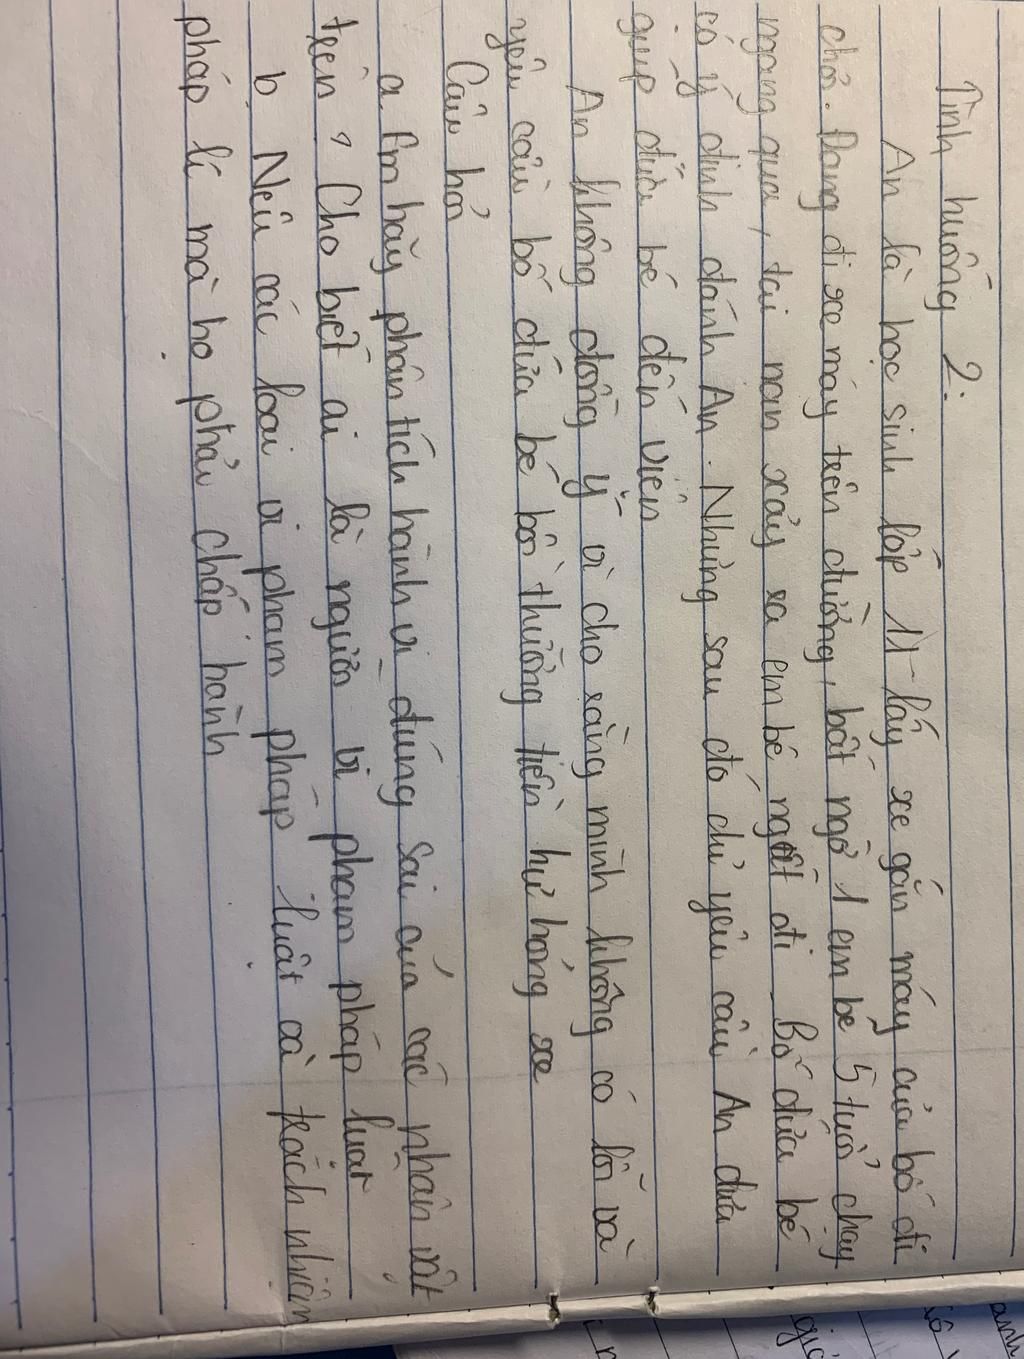 Tình huống 2:
An là học sinh lớp 11 lấy xe gắn máy của bố đi
chơi. Đang đi xe máy trên đường, bất ngờ 1 em bé 5 tuổi chạy
ngang qua, tai nạn xảy ra em bé ngất đi. Bố đứa bé
có ý định đánh An. Nhưng sau đó chỉ yêu cầu An đưa
giúp đứa bé đến viện
An không đồng ý vì cho rằng mình không có lỗi và
yêu cầu bố đứa bé bồi thường tiền hư hỏng xe
Câu hỏi
a Em hãy phân tích hành vi đúng sai của các nhân vật
trên, Cho biết ai là người vi phạm pháp luật
b, Nêu các loại vi phạm pháp luật và trách nhiệm
pháp lí mà họ phải chấp hành